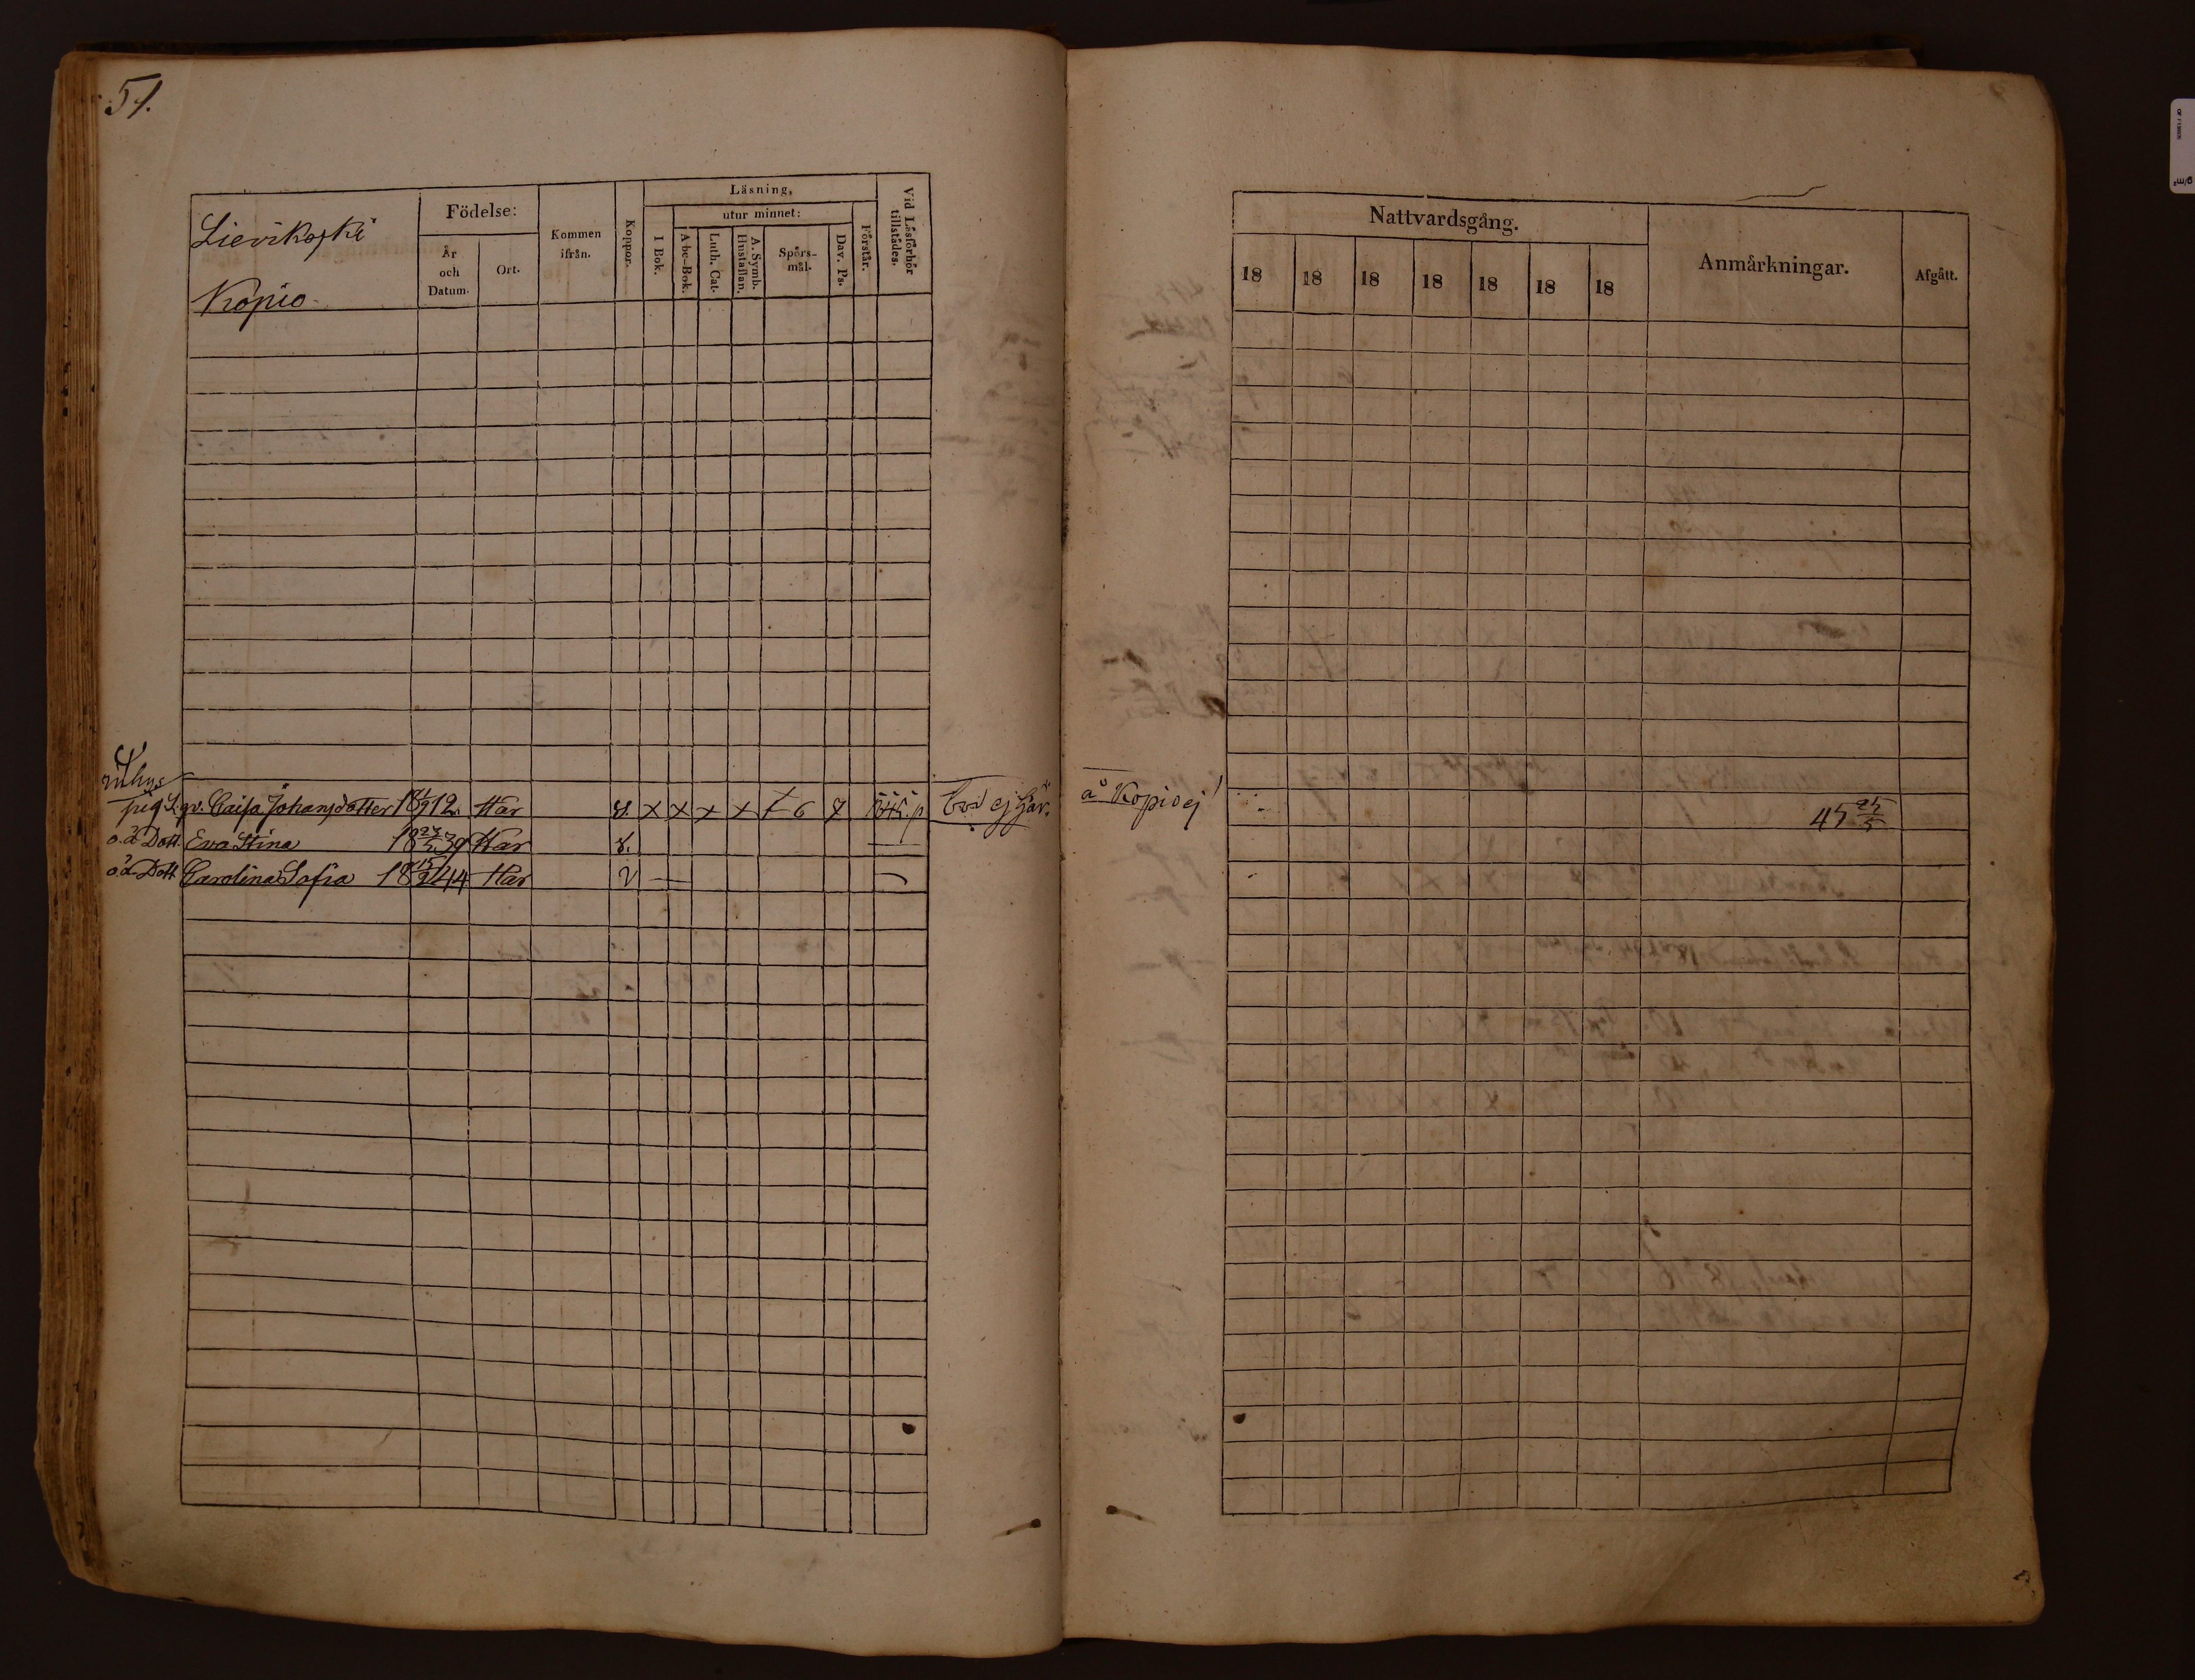 51.
Lievikoski
Kopio
Födelse:
År och Datum.
Ort.
Kommen ifrån.
Koppor.
Läsning,
I Bok.
utur minnet:
Abc-Bok.
Luth. Cat.
A. Symb. Hustaflan.
Spörs-mål.
Dav. Ps.
Förstår.
Vid Läsförhör tillstädes.
Nattvardsgång.
18 18 18 18 18 18 18
Anmärkningar.
Afgått.
inhys
pig Caisa Johansdotter 18 12. Här x x x x 6 7
Bor ej här. å Kopio ej
45 25/5
o.ä Dott. Eva Stina 18 39 Här
o.ä Dott Carolina Sofia 18 44 Här